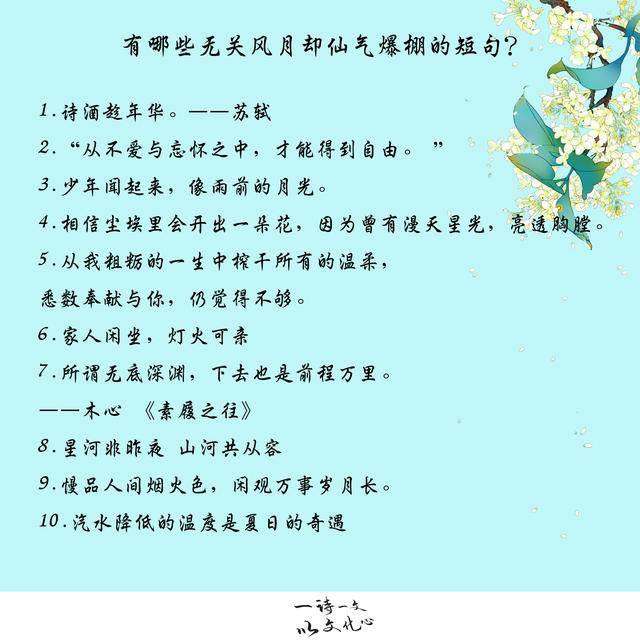 有哪些无关风月却仙气爆棚的短句?
1.诗酒趁年华。——苏轼
2.“从不爱与忘怀之中，才能得到自由。”
3.少年闻起来，像雨前的月光。
4.相信尘埃里会开出一朵花，因为曾有漫天星光，亮透胸膛。
5.从我粗粝的一生中榨干所有的温柔，
悉数奉献与你，仍觉得不够。
6.家人闲坐，灯火可亲
7.所谓无底深渊，下去也是前程万里。
——木心 《素履之往》
8.星河非昨夜 山河共从容
9.慢品人间烟火色，闲观万事岁月长。
10.汽水降低的温度是夏日的奇遇
一诗一文
以文化心